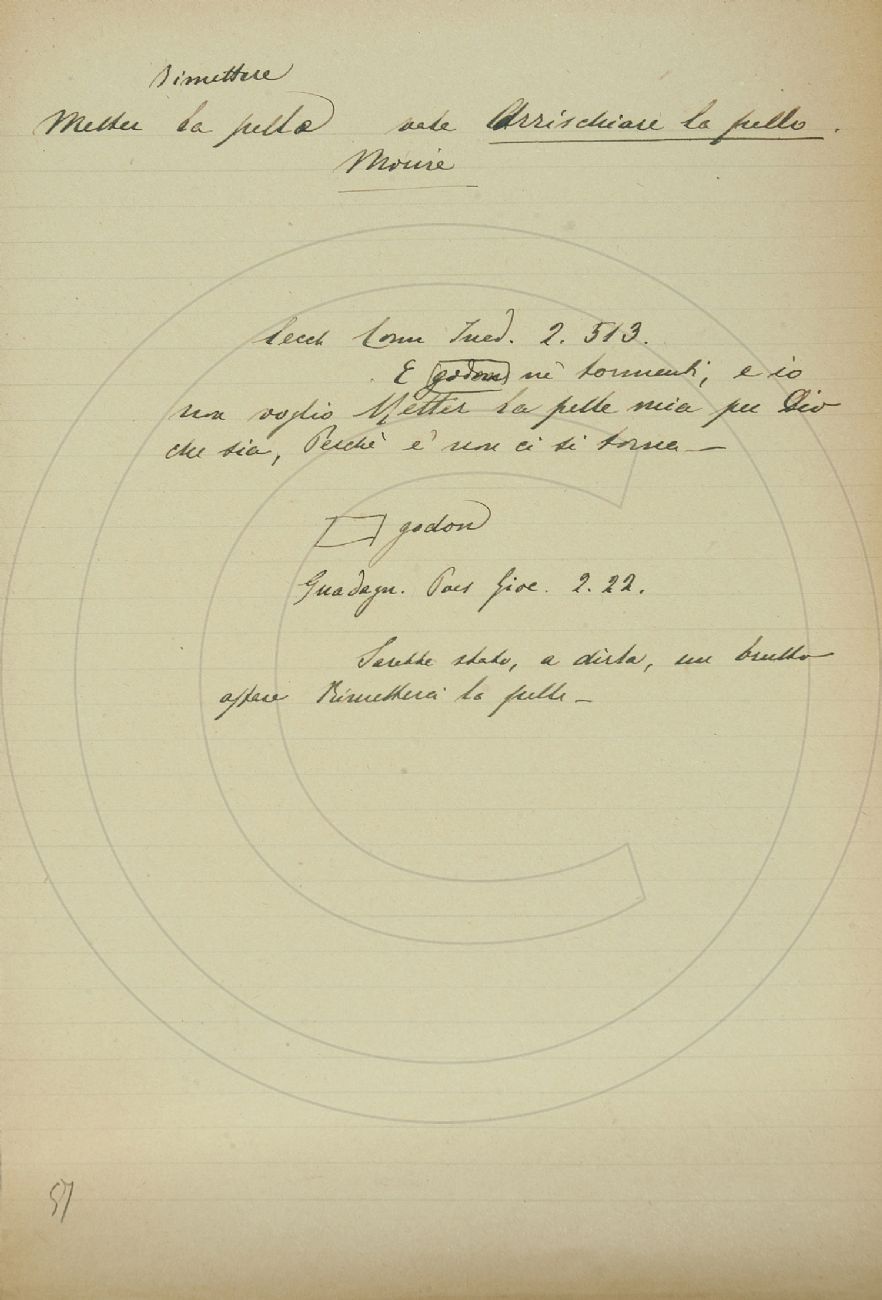 Rimettere
Metter la pelle vale Arrischiare la pelle.
Morire
Cecch Com Ined. 2. 513.
E godon ne' tormenti, e io
non voglio Metter la pelle mia per Dio
che sia, Perchè e' non ci si torna —
godon
Guadagn. Poes Gioc. 2. 22.
Sarebbe stato, a dirla, un brutto
affare Rimetterci la pelle —
57